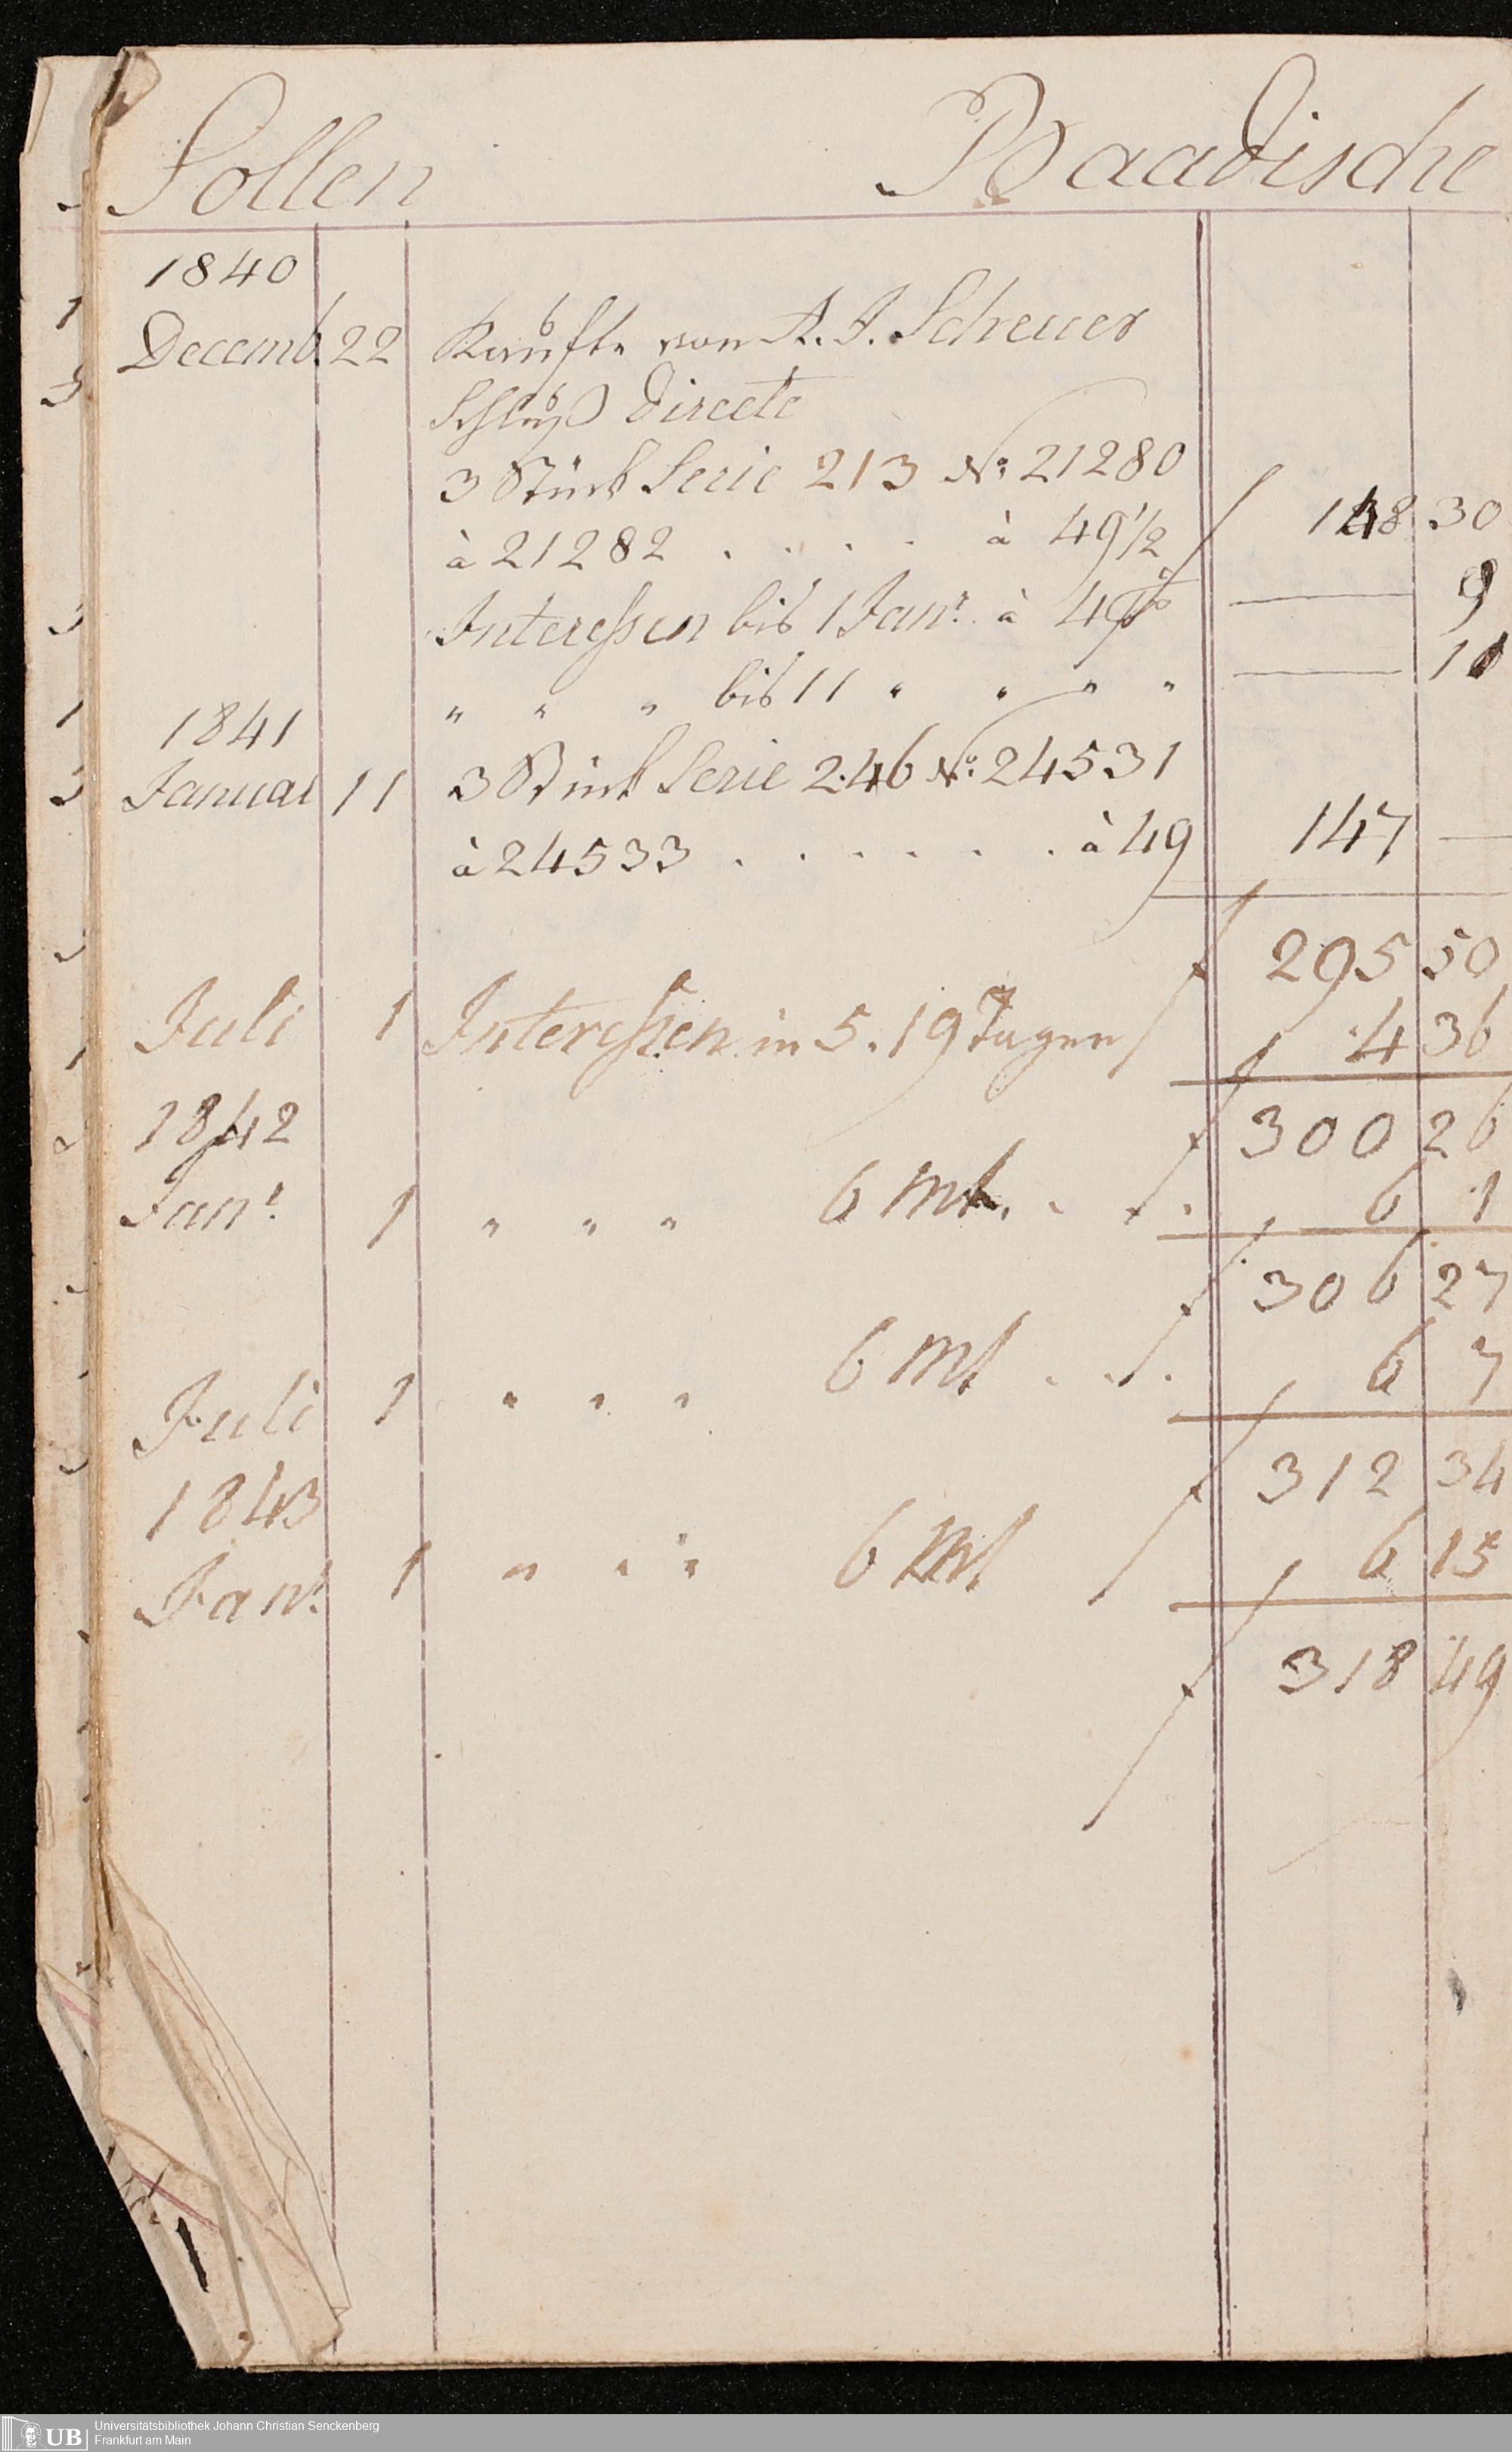 Sollen Baadische
1840
Decemb. 22 Kaufte von A. J. Scheuer
Schluß Directe
3 Stück Serie 213 No. 21280
à 21282 . . . . à 49 1/2 f 148 30
Interessen bis 1 Janr. à 4 % — 9
" " " bis 11 " " " " — 11
1841
Januar 11 3 Stück Serie 246 No. 24531
à 24533 . . . . . . à 49 147 —
f 295 50
Juli 1 Interessen in 5. 19 Tagen f 4 36
f 300 26
1842
Janr. 1 " " " 6 mt. . f. 6 1
f 306 27
Juli 1 " " " 6 mt . f. 6 7
f 312 34
1843
Janr. 1 " " " 6 mt f 6 15
f 318 49
UB
Universitätsbibliothek Johann Christian Senckenberg
Frankfurt am Main